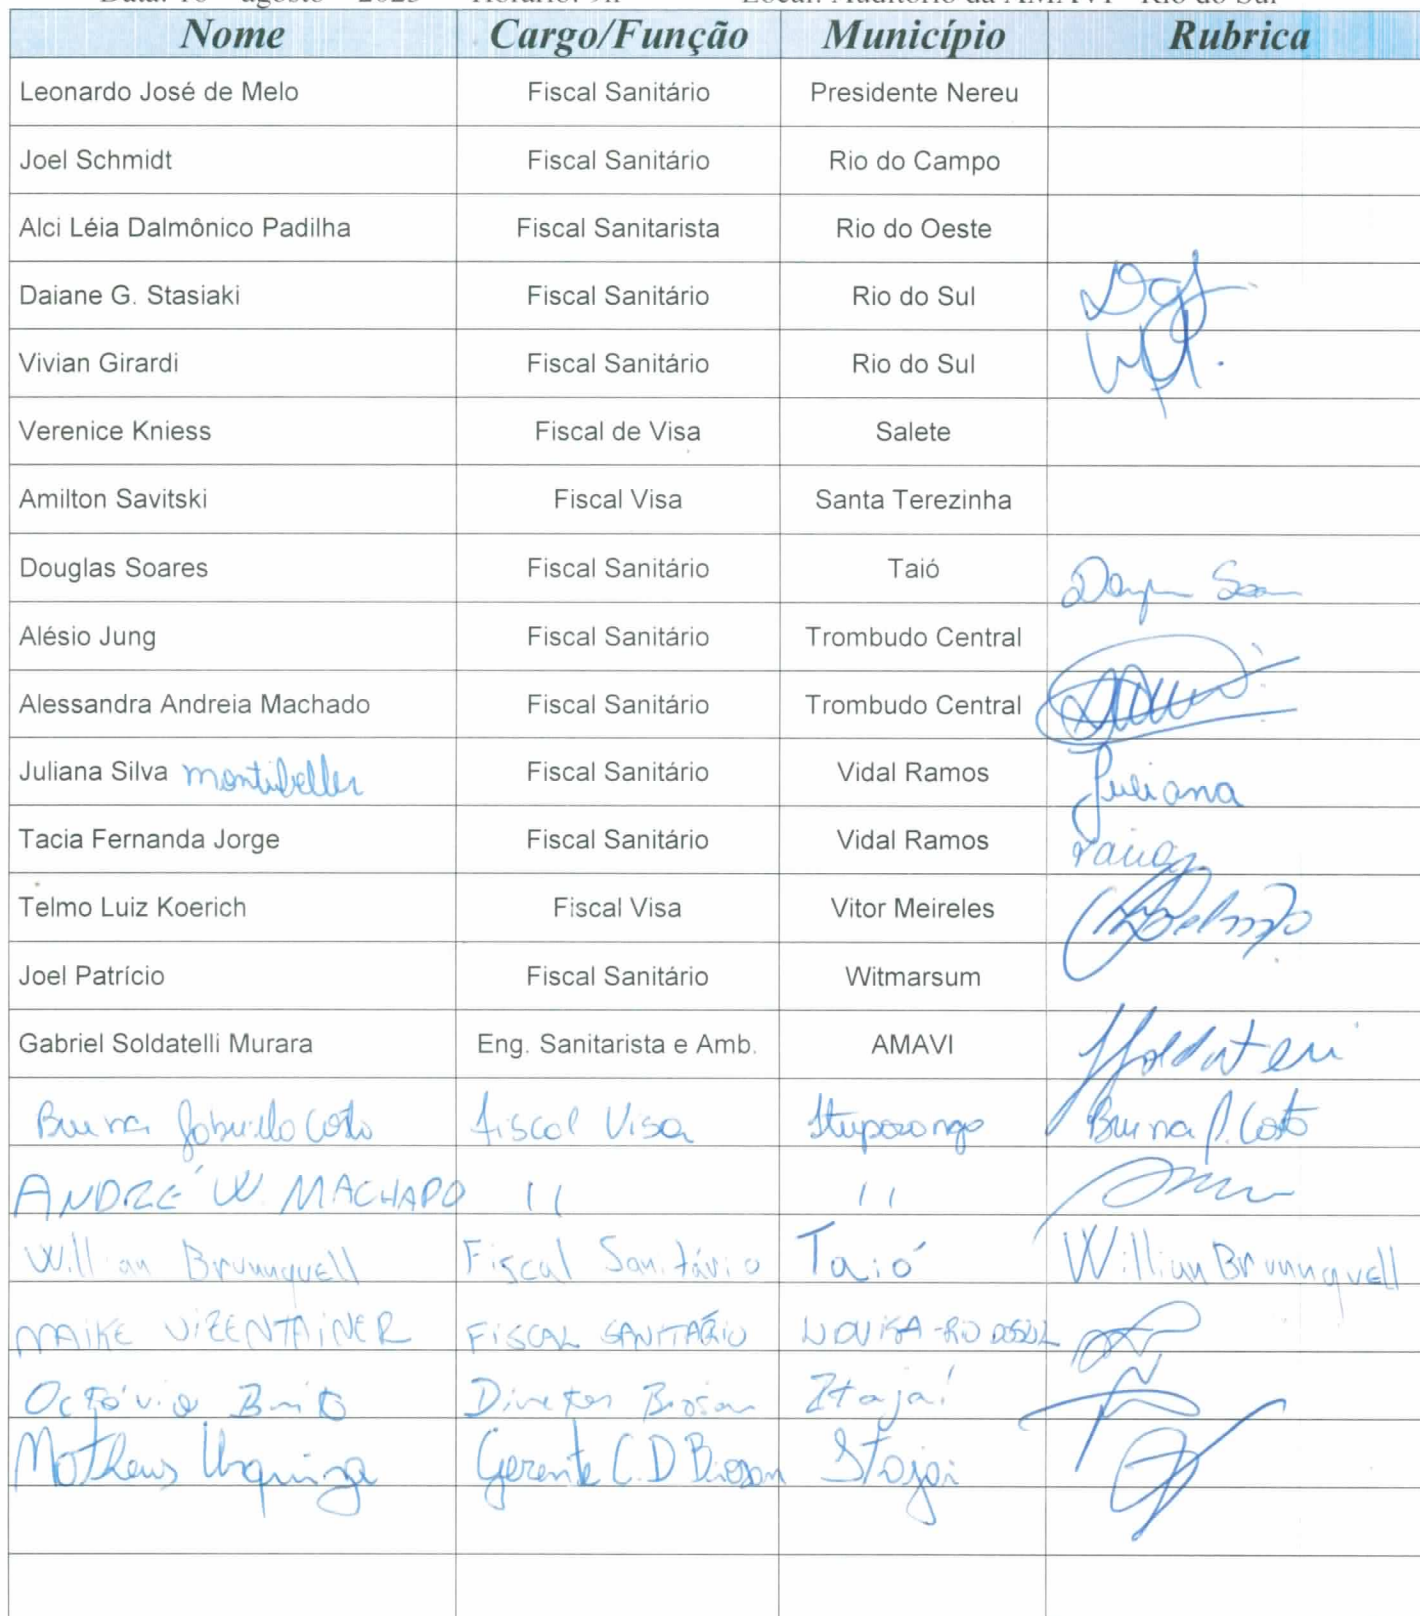 Nome Cargo/Função Município Rubrica
Leonardo José de Melo Fiscal Sanitário Presidente Nereu
Joel Schmidt Fiscal Sanitário Rio do Campo
Alci Léia Dalmônico Padilha Fiscal Sanitarista Rio do Oeste
Daiane G. Stasiaki Fiscal Sanitário Rio do Sul
Vivian Girardi Fiscal Sanitário Rio do Sul
Verenice Kniess Fiscal de Visa Salete
Amilton Savitski Fiscal Visa Santa Terezinha
Douglas Soares Fiscal Sanitário Taió
Alésio Jung Fiscal Sanitário Trombudo Central
Alessandra Andreia Machado Fiscal Sanitário Trombudo Central
Juliana Silva montibeller Fiscal Sanitário Vidal Ramos Juliana
Tacia Fernanda Jorge Fiscal Sanitário Vidal Ramos
Telmo Luiz Koerich Fiscal Visa Vitor Meireles
Joel Patrício Fiscal Sanitário Witmarsum
Gabriel Soldatelli Murara Eng. Sanitarista e Amb. AMAVI
Bruna Fiscal Visa Ituporanga Bruna
ANDRÉ W. MACHADO 11 11
Willian Brunnquell Fiscal Sanitário Taió Willian Brunnquell
MAIKE VIZENTAINER FISCAL SANITÁRIO
Octávio Brito Diretor Itajaí
Matheus Urquiza Gerente C.D Itajai